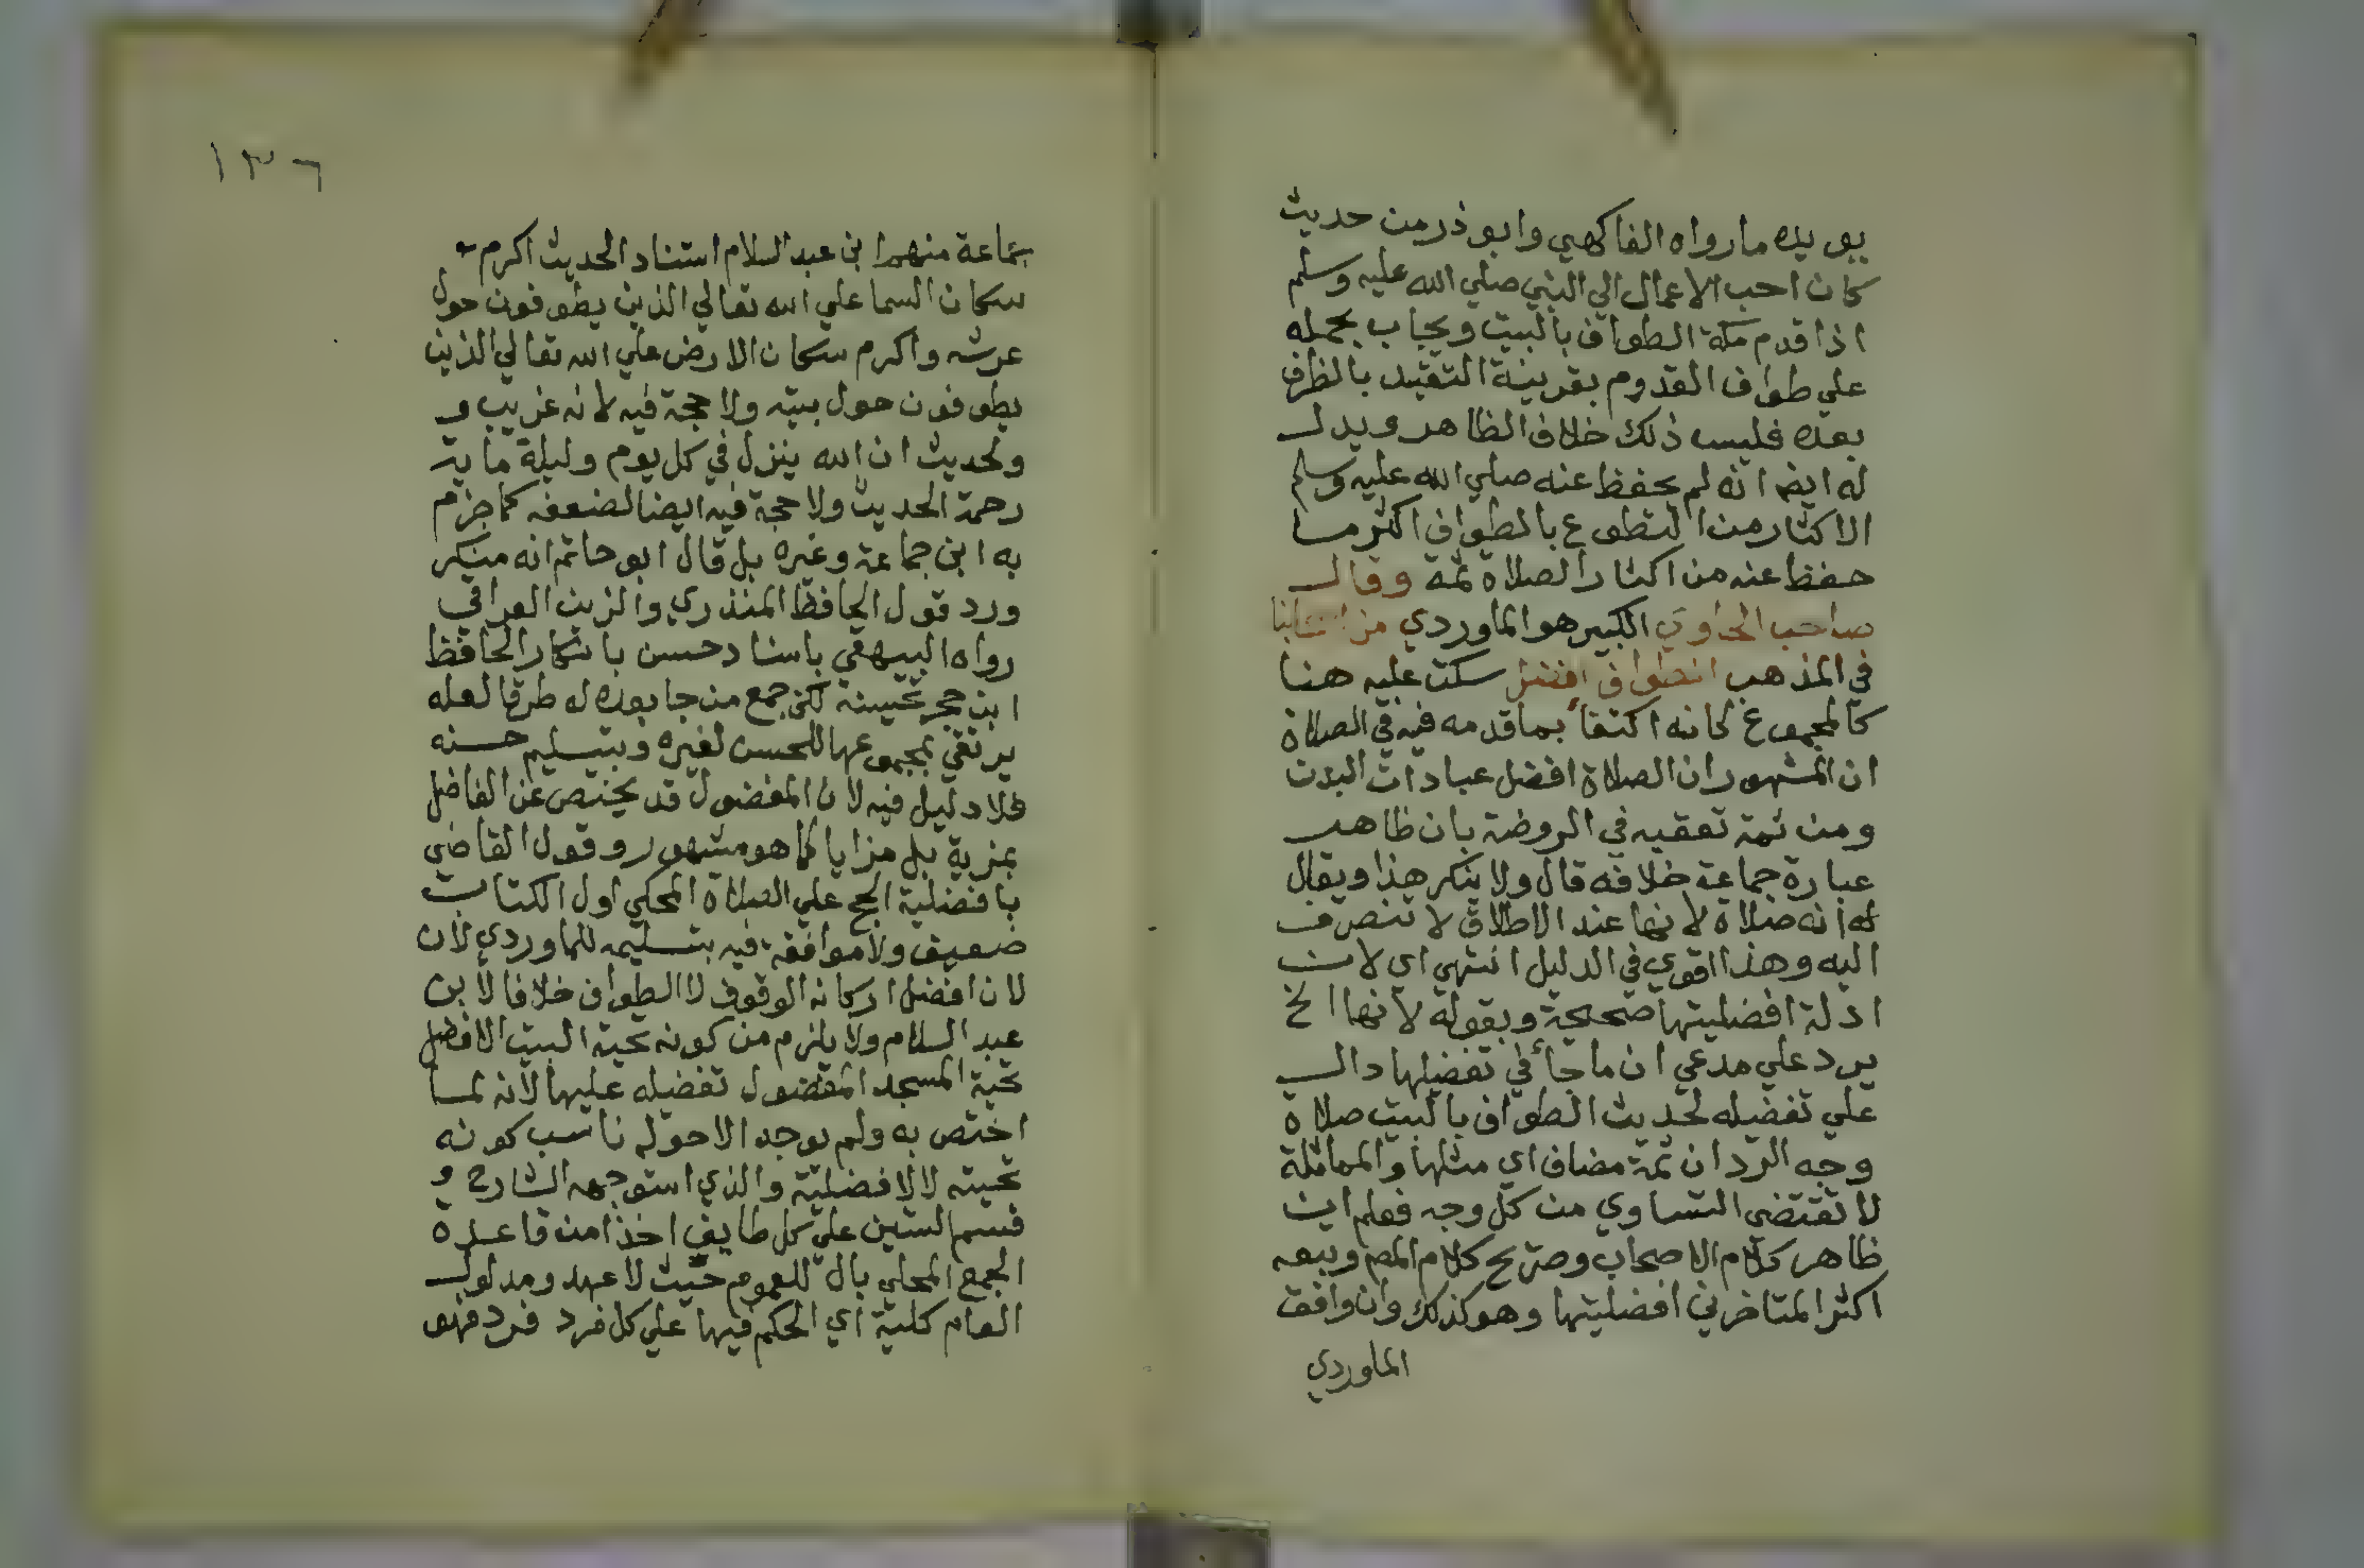 يويده مارواه الفاكهي وابو ذر من حديث
كان احب الاعمال الي النبي صلي الله عليه وسلم
اذا قدم مكة الطواف بالبيت ويجاب بحمله
علي طواف القدوم بقرينة التقييد بالظرف
بعده فليس ذلك خلاف الظاهر ويدل
له ايضا انه لم يحفظ عنه صلي الله عليه وسلم
الاكثار من التطوع بالطواف اكثر مما
حفظ عنه من اكثار الصلاة ثمة وقال
صاحب الحاوي الكبير هو الماوردي من اصحابنا
في المذهب الطواف افضل سكت عليه هنا
كالمجموع كانه اكتفأ بما قدمه فيه في الصلاة
ان المشهور ان الصلاة افضل عبادات البدن
ومن ثمة تعقبه في الروضة بان ظاهر
عبارة جماعة خلافه قال ولا ينكر هذا ويقال
له انه صلاة لانها عند الاطلاق لا تنصرف
اليه وهذا اقوي في الدليل انتهي اي لان
ادلة افضليتها صحيحة وبقوله لانها الخ
يرد علي مدعي ان ما جأ في تفضيلها دال
علي تفضيله لحديث الطواف بالبيت صلاة
وجه الرد ان ثمة مضاف اي مثلها والمماثلة
لا تقتضي التساوي من كل وجه فعلم ان
ظاهر كلام الاصحاب وصريح كلام المصـ وتبعه
اكثر المتاخرين افضليتها وهو كذلك وان وافق
الماوردي
١٣٦
جماعة منهم ابن عبد السلام استناد الحديث اكرم
سكان السما علي الله تعالي الذين يطوفون حول
عرشه واكرم سكان الارض علي الله تعالي الذين
يطوفون حول بيته ولا حجة فيه لانه غريب و
ولحديث ان الله ينزل في كل يوم وليلة ماية
رحمة الحديث ولا حجة فيه ايضا لضعفه كما جزم
به ابن جماعة وغيره بل قال ابو حاتم انه منكر
ورد قول الحافظ المنذري والزين العراقي
رواه البيهقي باسناد حسن بانكار الحافظ
ابن حجر تحسينه لكن جمع من جا بعده له طرقا لعله
يرتقي بمجموعها للحسن لغيره وبتسليم حسنه
فلا دليل فيه لان المفضول قد يختص عن الفاضل
بمزية بل مزايا كما هو مشهور وقول القاضي
بافضلية الحج علي الصلاة المحكي اول الكتاب
ضعيف ولا موافقة فيه بتسليمه للماوردي لان
لان افضل اركانه الوقوف لا الطواف خلافا لابن
عبد السلام ولا يلزم من كونه تحية البيت الافضل
تحية المسجد المفضول تفضيله عليها لانه لما
اختص به ولم يوجد الا حوله ناسب كونه
تحيته لا لافضلية والذي استوجهه الشارح و
قسم الستين علي كل طايف اخذا من قاعدة
الجمع المحلي بال للعموم حيث لا عهد ومدلول
العام كلية اي الحكم فيها علي كل فرد فرد فهو